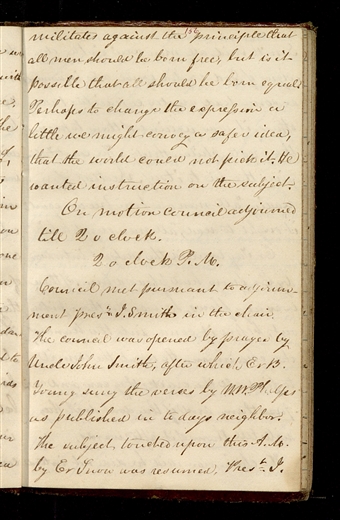 militates against the 1st principle that
all men should be born free, but is it
possible that all should be born equal?
Perhaps to change the expression a
little we might convey a safer idea,
that the world could not pick it. He
wanted instruction on the subject.
On motion council adjourned
till 2 o clock.
2 o clock P.M.
Council met pursuant to adjourn-
ment Prest J. Smith in the chair
The council was opened by prayer by
Uncle John Smith, after which Er B.
Young sung the verses by W.W. Phelps
as published in to days neighbor.
The subject touched upon this A.M.
by Er Snow was resumed. Prest J.